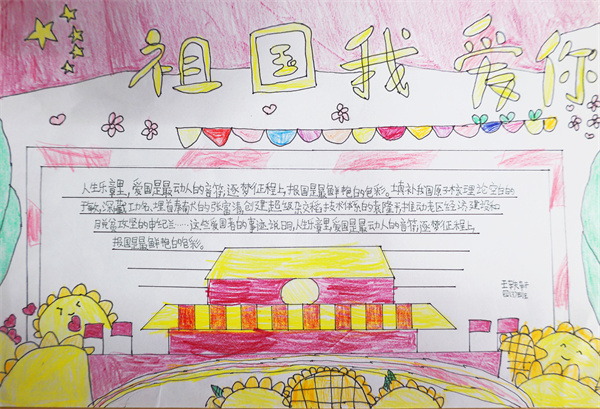 祖国我爱你
人生乐章里,爱国是最动人的音符,逐梦征程上,报国是最鲜艳的色彩。填补我国原子核理论空白的
于敏,深藏功名、埋首奉献的张富清,创建超级杂交稻技术体系的袁隆平,推动老区经济建设和
脱贫攻坚的申纪兰……这些爱国者的事迹说明,人生乐章里,爱国是最动人的音符,逐梦征程上,
报国是最鲜艳的色彩。